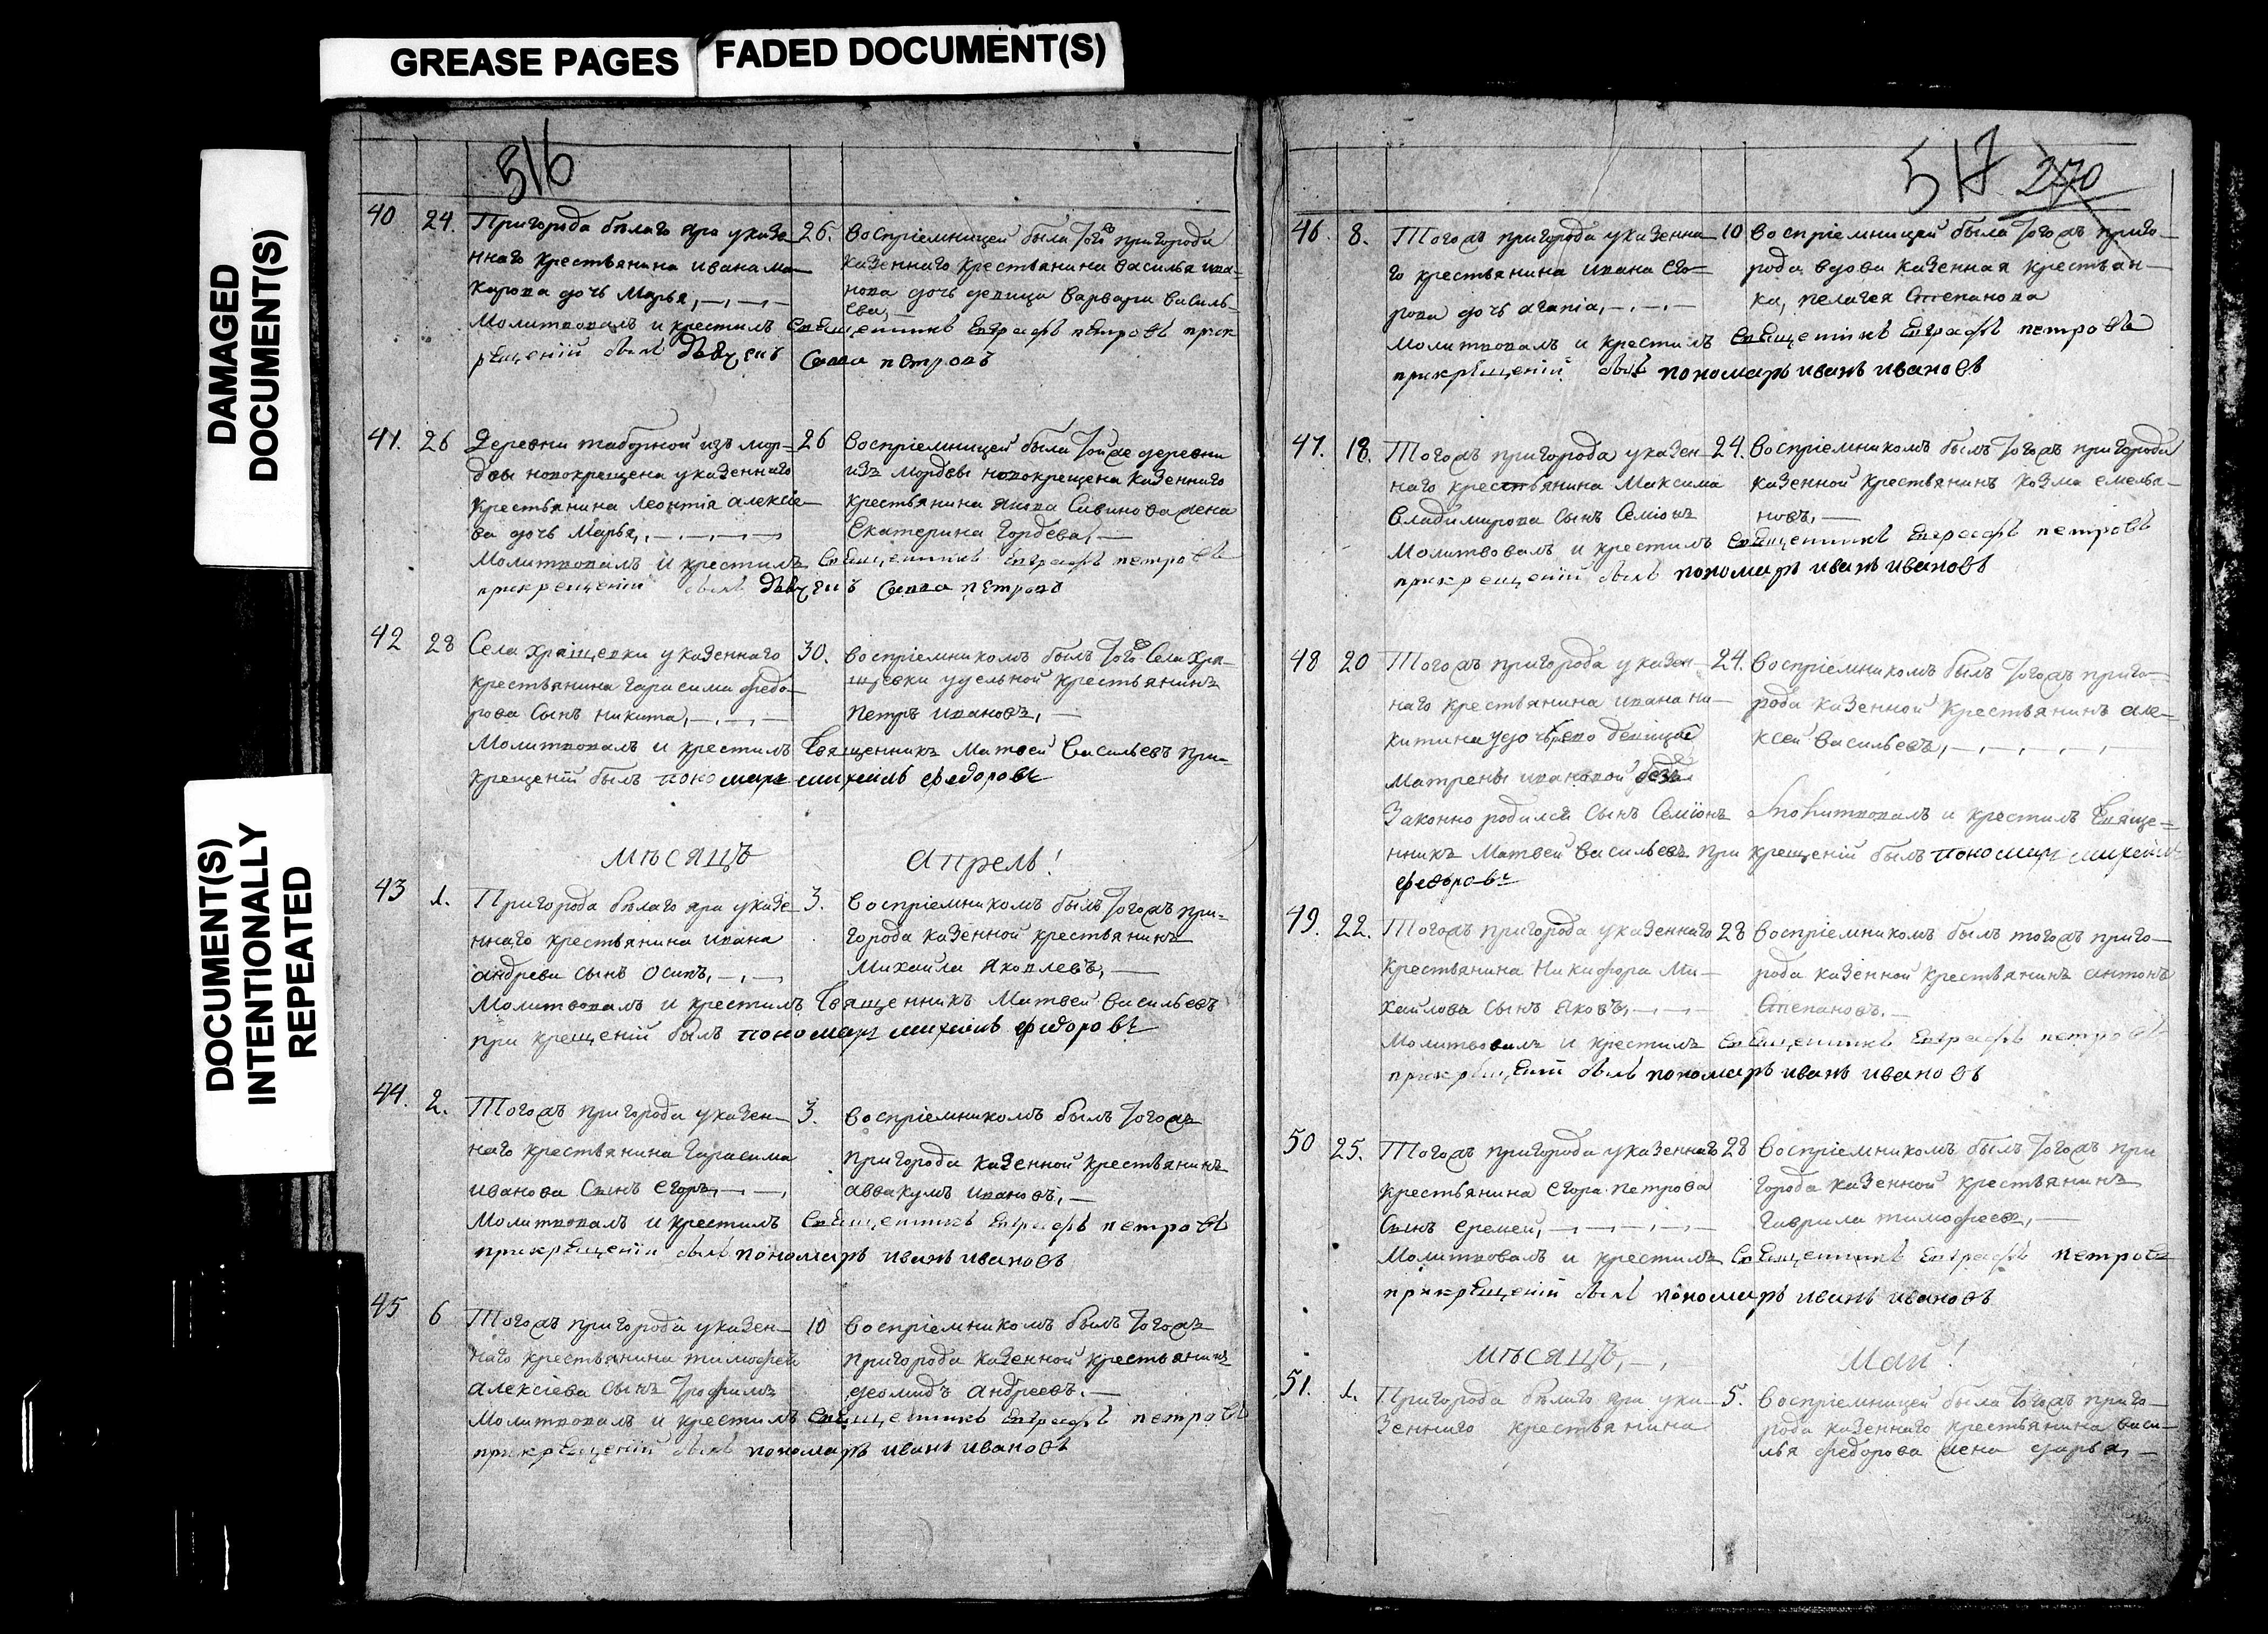 GREASE PAGES
FADED DOCUMENT(S)
DAMAGED
DOCUMENT(S)
DOCUMENT(S)
INTENTIONALLY
REPEATED
516
40 24. Пригорода белаго яра у казе
ннаго крестьянина ивана ма
карова дочь Марья,
26. восприемницей была того пригорода
казеннаго крестьянина василья ива=
нова дочь девица варвара василь=
ева,
Молитвовалъ и крестилъ священникъ Евграфъ петровъ при к
рещении былъ дьячекъ Савва петровъ
41. 26 Деревни таборной изъ мор=
двы новокрещена у казеннаго
крестьянина леонтiя алексiе
ва дочь Марья,
26 восприемницей была тойже деревни
изъ мордвы новокрещена казеннаго
крестьянина якова Савинова жена
Екатерина Гордева,
Молитвовалъ и крестилъ священникъ Евграфъ петровъ
при крещении былъ дьячекъ Савва петровъ
42 28 Села хрящевки у казеннаго
крестьянина гарасима федо
рова сынъ никита,
30. восприемникомъ былъ того села хря=
щевки удельной крестьянинъ
петръ ивановъ,
Молитвовалъ и крестилъ священникъ Матвей васильевъ при
крещенiй былъ пономарь михаилъ федоровъ
мѣсяцъ апрель!
43 1. Пригорода белаго яра у казе
ннаго крестьянина ивана
андреева сынъ осипъ,
3. восприемникомъ былъ тогожъ при=
города казенной крестьянинъ
Михаила яковлевъ,
Молитвовалъ и крестилъ священникъ Матвей васильевъ
при крещенiй былъ пономарь михаилъ федоровъ
44. 2. Тогожъ пригорода у казен
наго крестьянина гарасима
иванова сынъ егоръ,
3. восприемникомъ былъ тогожъ
пригорода казенной крестьянинъ
аввакумъ ивановъ,
Молитвовалъ и крестилъ священникъ Евграфъ петровъ
при крещенiи былъ пономарь иванъ ивановъ
45 6 Тогожъ пригорода у казен
наго крестьянина тимофея
алексiева сынъ трофимъ
10 восприемникомъ былъ тогожъ
пригорода казенной крестьянинъ
андреевъ.
Молитвовалъ и крестилъ священникъ Евграфъ петровъ
при крещенiй былъ пономарь иванъ ивановъ
517 270
46 8. Тогожъ пригорода у казенна
го крестьянина ивана его=
рова дочь агапiа,
10 восприемницей была тогожъ приго
рода вдова казенная крестьян
ка, пелагея Степанова
Молитвовалъ и крестилъ священникъ Евграфъ петровъ
при крещенiй былъ пономарь иванъ ивановъ
47. 18. Тогожъ пригорода у казен
наго крестьянина Максима
владимирова сынъ Семiонъ
24. восприемникомъ былъ тогожъ пригорода
казенной крестьянинъ козма емелья=
новъ,
Молитвовалъ и крестилъ священникъ Евграфъ петровъ
при крещенiй былъ пономарь иванъ ивановъ
48 20 Тогожъ пригорода у казен
наго крестьянина ивана ни
китина у дочь ево девицы
матрены ивановой без
законно родился сынъ Семiонъ
24. восприемникомъ былъ тогожъ приго=
рода казенной крестьянинъ але=
ксей васильевъ,
Молитвовалъ и крестилъ священ=
никъ Матвей васильевъ при крещенiй былъ пономарь михаилъ
федоровъ
49. 22. Тогожъ пригорода у казеннаго
крестьянина Никифора Ми
хайлова сынъ яковъ,
28 восприемникомъ былъ тогожъ приго
рода казенной крестьянинъ антонъ
Степановъ.
Молитвовалъ и крестилъ священникъ Евграфъ петровъ
при крещенiй былъ пономарь иванъ ивановъ
50 25. Тогожъ пригорода у казеннаго
крестьянина егора петрова
сынъ еремей,
28 восприемникомъ былъ тогожъ при
города казенной крестьянинъ
гаврила тимофеевъ,
Молитвовалъ и крестилъ священникъ Евграфъ петровъ
при крещенiй былъ пономарь иванъ ивановъ
мѣсяцъ, май!
51. 1. Пригорода белаго яра у ка
зеннаго крестьянина
5. восприемницей была тогожъ приго
рода казеннаго крестьянина васи
лья федорова жена дарья,